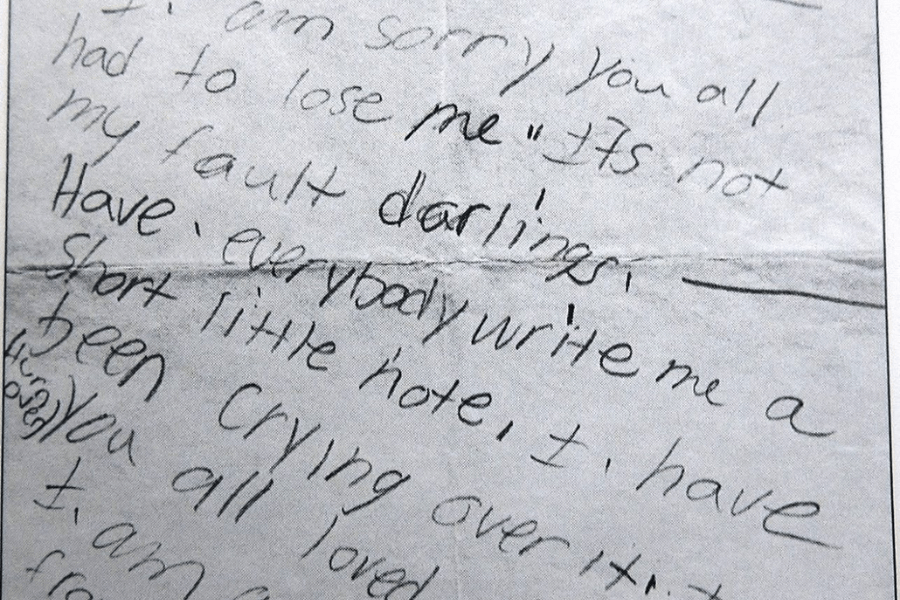 I. am sorry you all
had to lose me" Its not
my fault darlings.
Have. everybody write me a
short little note. I. have
been crying over it.
(turn over)
you all loved
I. am